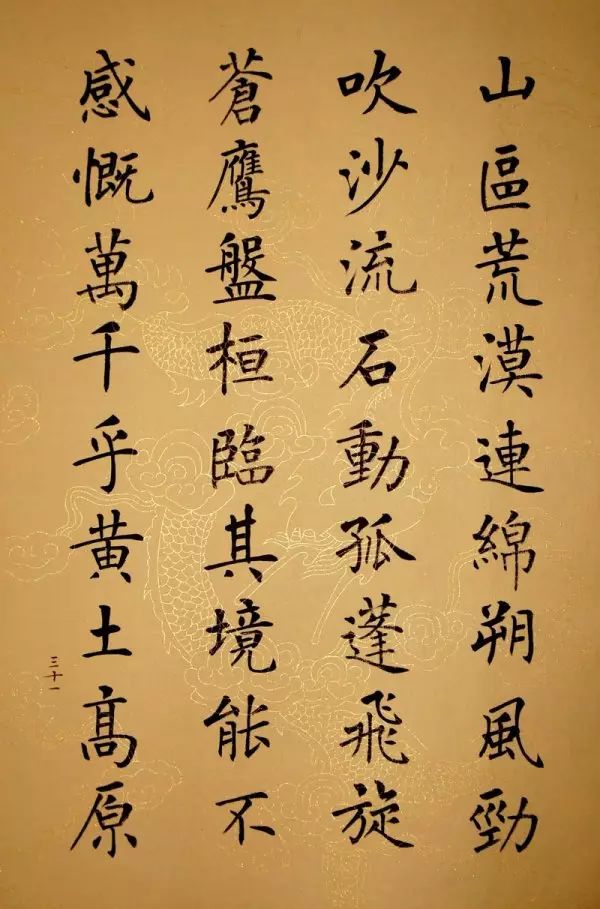 山區荒漠連綿朔風勁
吹沙流石動孤蓬飛旋
蒼鷹盤桓臨其境能不
感慨萬千乎黄土高原
三十一